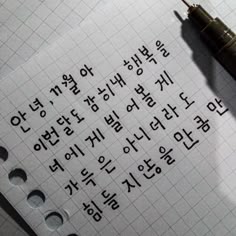 안녕, 11월 아
이번 달도 감히 내 행복을
너에게 빌어 볼 게
가득은 아니더라도
힘들지 않을 만큼만